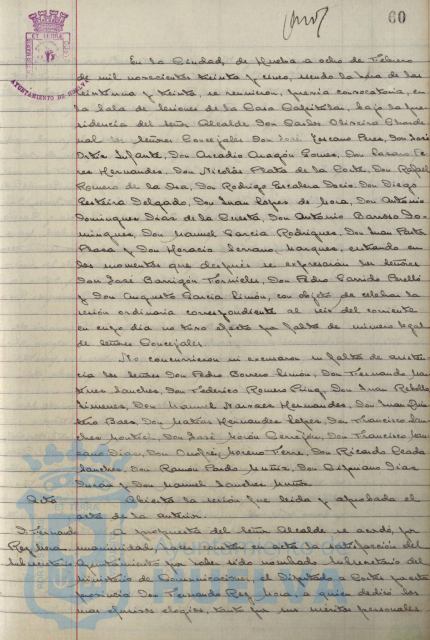 60
AYUNTAMIENTO DE HUELVA
En la Ciudad de Huelva a ocho de Febrero
de mil novecientos treinta y cinco, siendo la hora de las
veintiuna y treinta, se reunieron, previa convocatoria, en
la Sala de Sesiones de la Casa Capitular, bajo la pre-
sidencia del Señor Alcalde Don Carlos Oliveira
los Señores Concejales Don José Don José
Ortiz Infante, Don Arcadio Aragón Gómez, Don Lázaro Pe-
rez Hernandez, Don Nicolás Prata de la Corte, Don Rafael
Romero de la Osa, Don Rodrigo Escalera Don Diego
Delgado, Don Juan Lopez de Mora, Don Antonio
Dominguez Diaz de la Cuesta, Don Antonio Barroso Do-
minguez, Don Manuel Garcia Rodriguez, Don Juan
y Don Horacio Serrano Marquez, entrando en
los momentos que después se expresarán los señores
Don José Barrigón Tornielli, Don Pedro Garrido Perelló
y Don Augusto Garcia Limón, con objeto de celebrar la
sesión ordinaria correspondiente al seis del corriente
en cuyo día no tuvo efecto por falta de número legal
de señores Concejales.
No concurrieron ni excusaron su falta de asisten-
cia los señores Don Pedro Borrero Limón, Don Fernando
Sanchez, Don Federico Romero Don Juan Rebollo
Jimenez, Don Manuel Narvaez Hernandez, Don Juan Quin-
tero Baez, Don Matías Hernandez Lopez, Don Francisco San-
chez Don José Morón Don Francisco
Diaz, Don Andrés Moreno Don Ricardo
Sanchez, Don Ramón Pardo Muñiz, Don Cipriano Diaz
Duran y Don Manuel Sanchez
Acta Abierta la sesión fue leida y aprobada el
acta de la anterior.
D. Fernando A propuesta del Señor Alcalde se acordó, por
Rey Mora, unanimidad, que conste en acta la satisfacción del
Subsecretario Ayuntamiento por haber sido nombrado Subsecretario del
Ministerio de Comunicaciones, el Diputado a Cortes por esta
provincia Don Fernando Rey Mora, a quien dedicó los
mas efusivos elogios, tanto por sus méritos personales